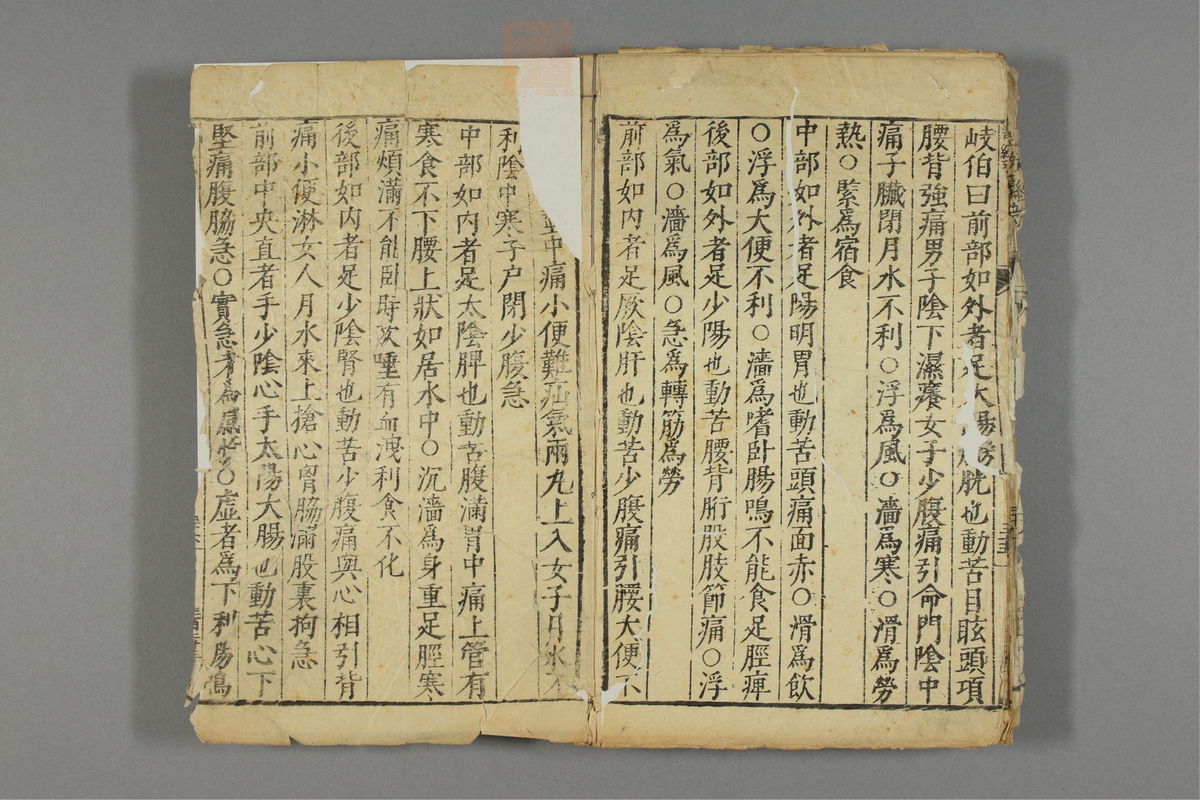 岐伯曰前部如外者足太陽膀胱也動苦目眩頭項
腰背強痛男子陰下濕癢女子少腹痛引命門陰中
痛子臟閉月水不利○浮爲風○濇爲寒○滑爲勞
熱○緊爲宿食
中部如外者足陽明胃也動苦頭痛面赤○滑爲飲
○浮爲大便不利○濇爲嗜卧腸鳴不能食足脛痺
後部如外者足少陽也動苦腰背胻股肢節痛○浮
爲氣○濇爲風○急爲轉筋爲勞
前部如内者足厥陰肝也動苦少腹痛引腰大便不
中痛小便難疝氣兩丸上入女子月水不
利陰中寒子户閉少腹急
中部如内者足太陰脾也動苦腹滿胃中痛上管有
寒食不下腰上狀如居水中○沉濇爲身重足脛寒
痛煩滿不能卧時欬唾有血洩利食不化
後部如内者足少陰腎也動苦少腹痛與心相引背
痛小便淋女人月水來上搶心胷脇滿股裏拘急
前部中央直者手少陰心手太陽大腸也動苦心下
堅痛腹脇急○實急者爲感忤○虚者爲下利腸鳴